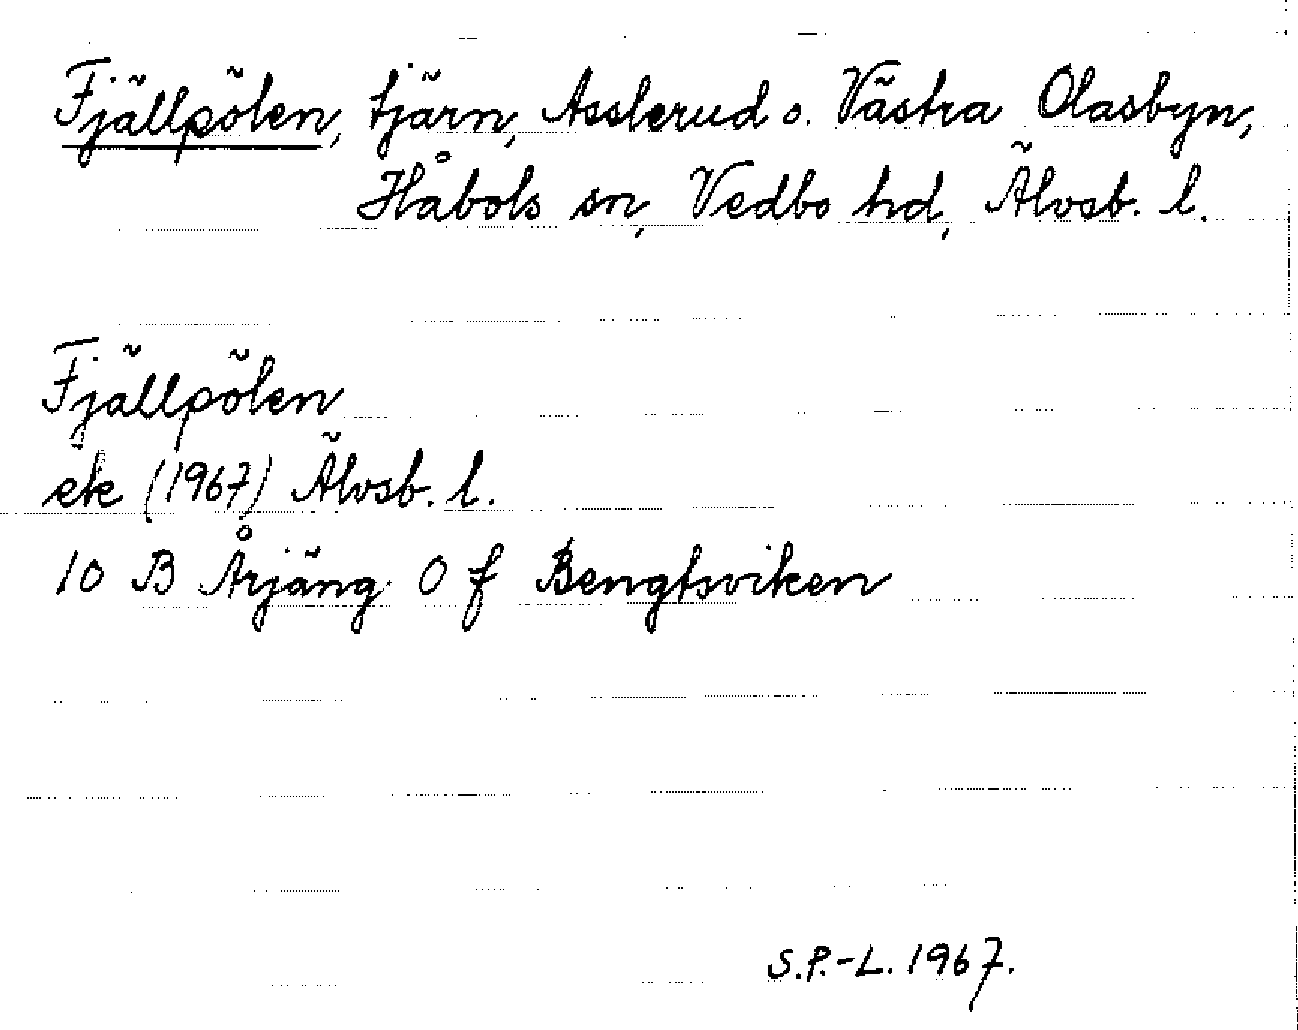 Fjällpölen, tjärn, Asslerud o. Västra Olasbyn,
Håbols sn, Vedbo hd, Älvsb. l.
Fjällpölen
ek (1967) Älvsb. l.
10 B Årjäng 0 f Bengtsviken
S.P.-L. 1967.